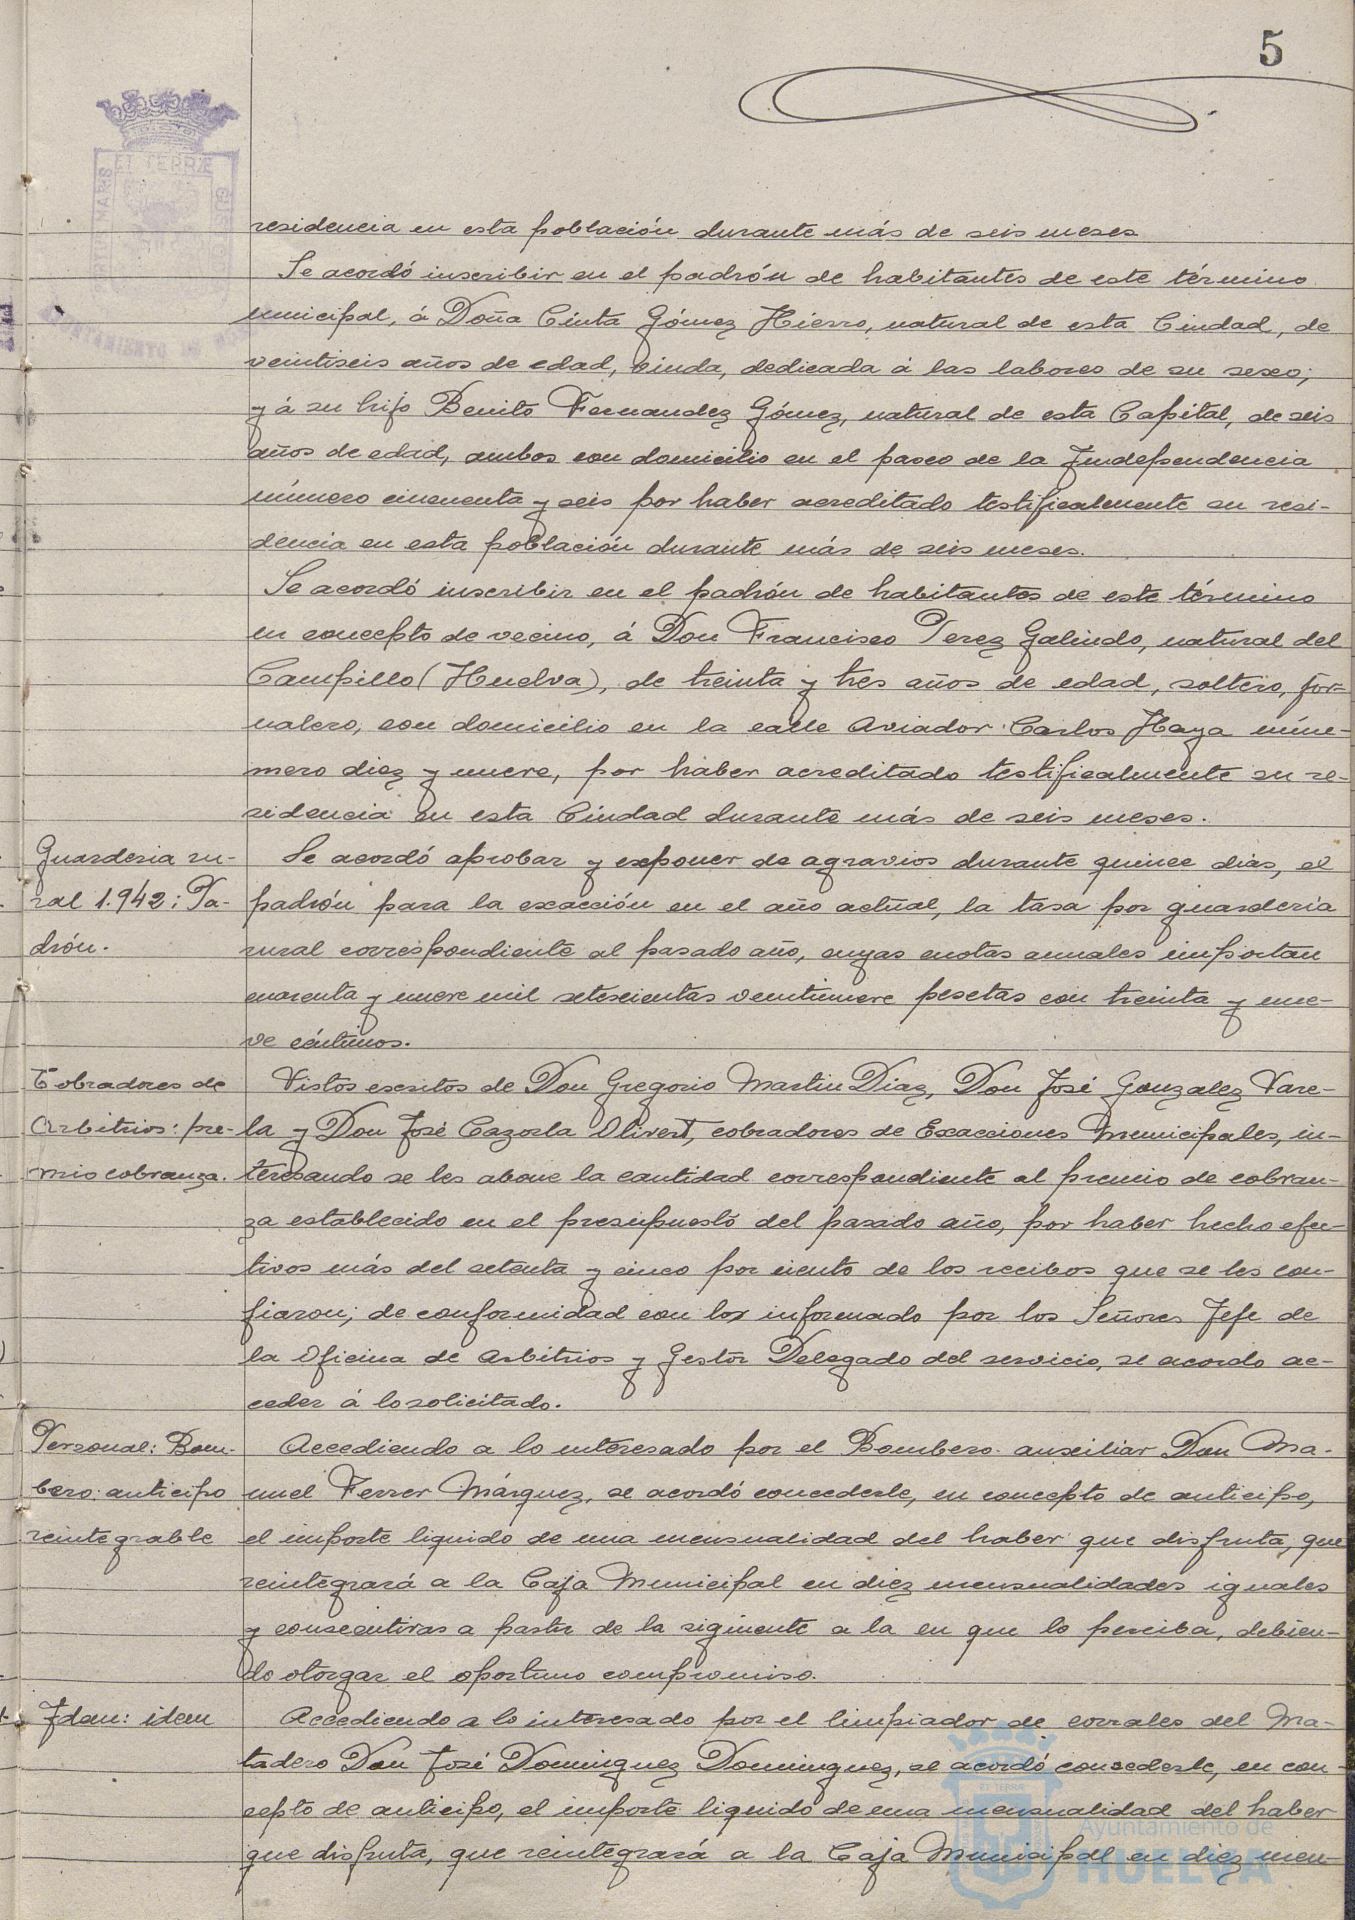 5
ET TERRÆ
PORTUS MARIS
AYUNTAMIENTO DE
residencia en esta población durante más de seis meses
Se acordó inscribir en el padrón de habitantes de este término
municipal, á Doña Cinta Gómez Hierro, natural de esta Ciudad, de
veintiseis años de edad, viuda, dedicada á las labores de su sexo;
y á su hijo Benito Fernandez Gómez, natural de esta Capital, de seis
años de edad, ambos con domicilio en el paseo de la Independencia
número cincuenta y seis por haber acreditado testificalmente su resi-
dencia en esta población durante más de seis meses.
Se acordó inscribir en el padrón de habitantes de este término
en concepto de vecino, á Don Francisco Perez Galindo, natural del
Campillo (Huelva), de treinta y tres años de edad, soltero, jor-
nalero, con domicilio en la calle Aviador Carlos Haya núme-
mero diez y nueve, por haber acreditado testificalmente su re-
sidencia en esta Ciudad durante más de seis meses.
Guarderia ru- Se acordó aprobar y exponer de agravios durante quince dias, el
ral 1.942: Pa- padrón para la exacción en el año actual, la tasa por guardería
drón. rural correspondiente al pasado año, cuyas cuotas anuales importan
cuarenta y nueve mil setecientas veintinueve pesetas con treinta y nue-
ve céntimos.
Cobradores de Vistos escritos de Don Gregorio Martin Diaz, Don José Gonzalez Vare-
Arbitrios: pre- la y Don José Cazorla Olivert, cobradores de Exacciones Municipales, in-
mio cobranza. teresando se les abone la cantidad correspondiente al premio de cobran-
za establecido en el presupuesto del pasado año, por haber hecho efec-
tivos más del setenta y cinco por ciento de los recibos que se les con-
fiaron; de conformidad con lo informado por los Señores Jefe de
la Oficina de Arbitrios y Gestor Delegado del servicio, se acordo ac-
ceder á lo solicitado.
Personal: Bom- Accediendo a lo interesado por el Bombero auxiliar Don Ma-
bero: anticipo nuel Ferrer Márquez, se acordó concederle, en concepto de anticipo,
reintegrable el importe liquido de una mensualidad del haber que disfruta, que
reintegrará a la Caja Municipal en diez mensualidades iguales
y consecutivas a partir de la siguiente a la en que lo perciba, debien-
do otorgar el oportuno compromiso.
Idem: idem Accediendo a lo interesado por el limpiador de corrales del Ma-
tadero Don José Dominguez Dominguez, se acordó concederle, en con-
cepto de anticipo, el importe liquido de una mensualidad del haber
que disfruta, que reintegrará a la Caja Municipal en diez men-
Ayuntamiento de
HUELVA